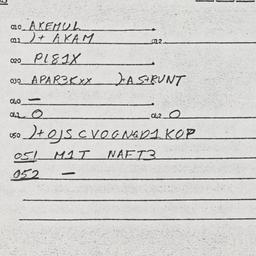 010 AKEMUL
011 )+ AKAM 012
020 PI81X
030 APAR3Kxx )+ASRUNT
040 —
041 O 042 O
050 )+OJSCVOGNGD1KOP
051 M1T NAFT3
052 —